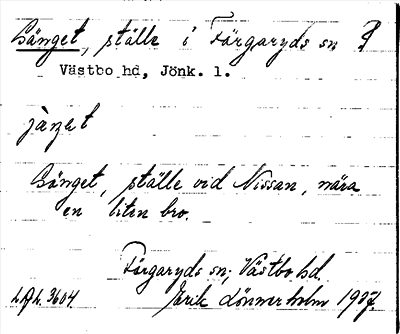 Gänget, ställe i Färgaryds sn
Västbo hd, Jönk. l.
jäŋet
Gänget, ställe vid Nissan, nära
en liten bro.
Färgaryds sn; Västbo hd.
Erik Lönnerholm 1937.